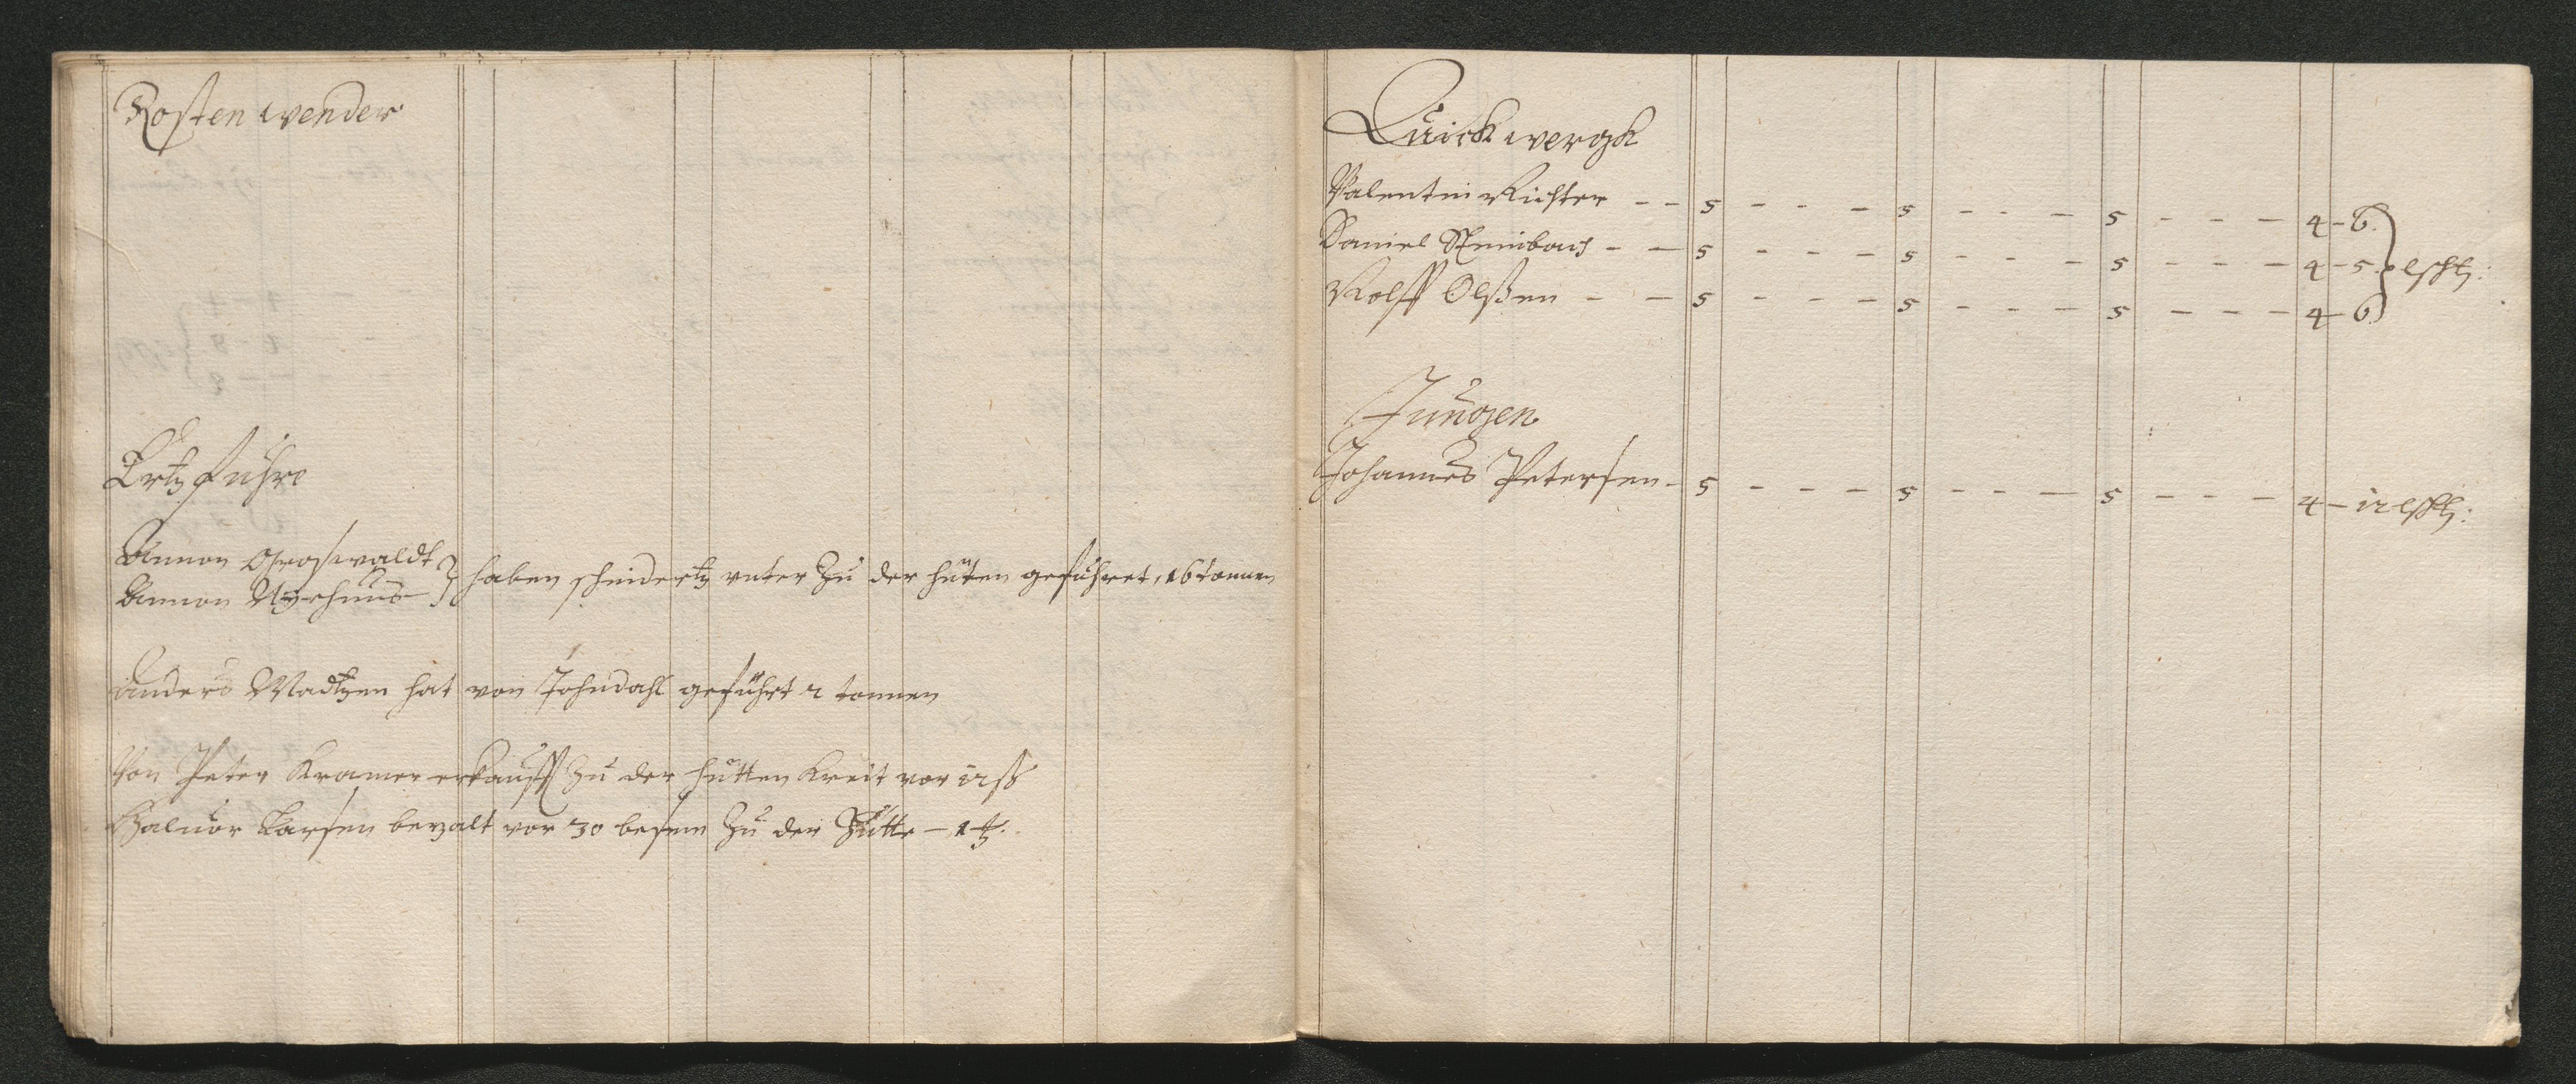 Rosten wender
Ertz fuhre
Amon Groswaldt
Amon Nyehuus } haben scheidertz unter zu der hütten geführet, 16 tonnen
anders Madtzen hat von Johndahl geführt 2 tonnen
Von Peter Kramer erkaufft zu der hutten Kreit vor 12 ß
Haluor Larsen bezalt vor 30 besem zu der Hütte – 1
Quickwergk
Valentin Richter - - 5 - - - 5 - - - 5 - - - 4 - 6
Daniel Steinbach - - 5 - - - 5 - - - 5 - - - 4 - 5
Rolff Olßen - - 5 - - - 5 - - - 5 - - - 4 - 6
Jungen
Johannes Petersen - 5 - - - 5 - - - 5 - - - 4 - 12